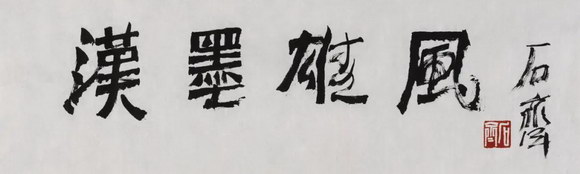 漢墨雄風
石齊